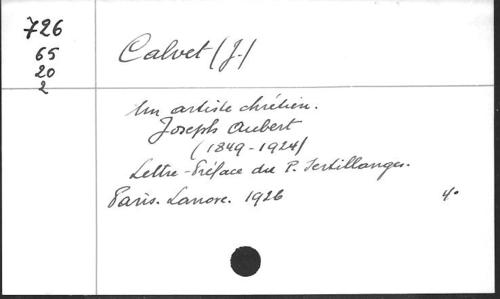 726
65
20
2
Calvet (J.)
Un artiste chrétien.
Joseph Aubert
(1849-1924)
Lettre-Préface du P. Sertillanges.
Paris. Lanore. 1926
4°